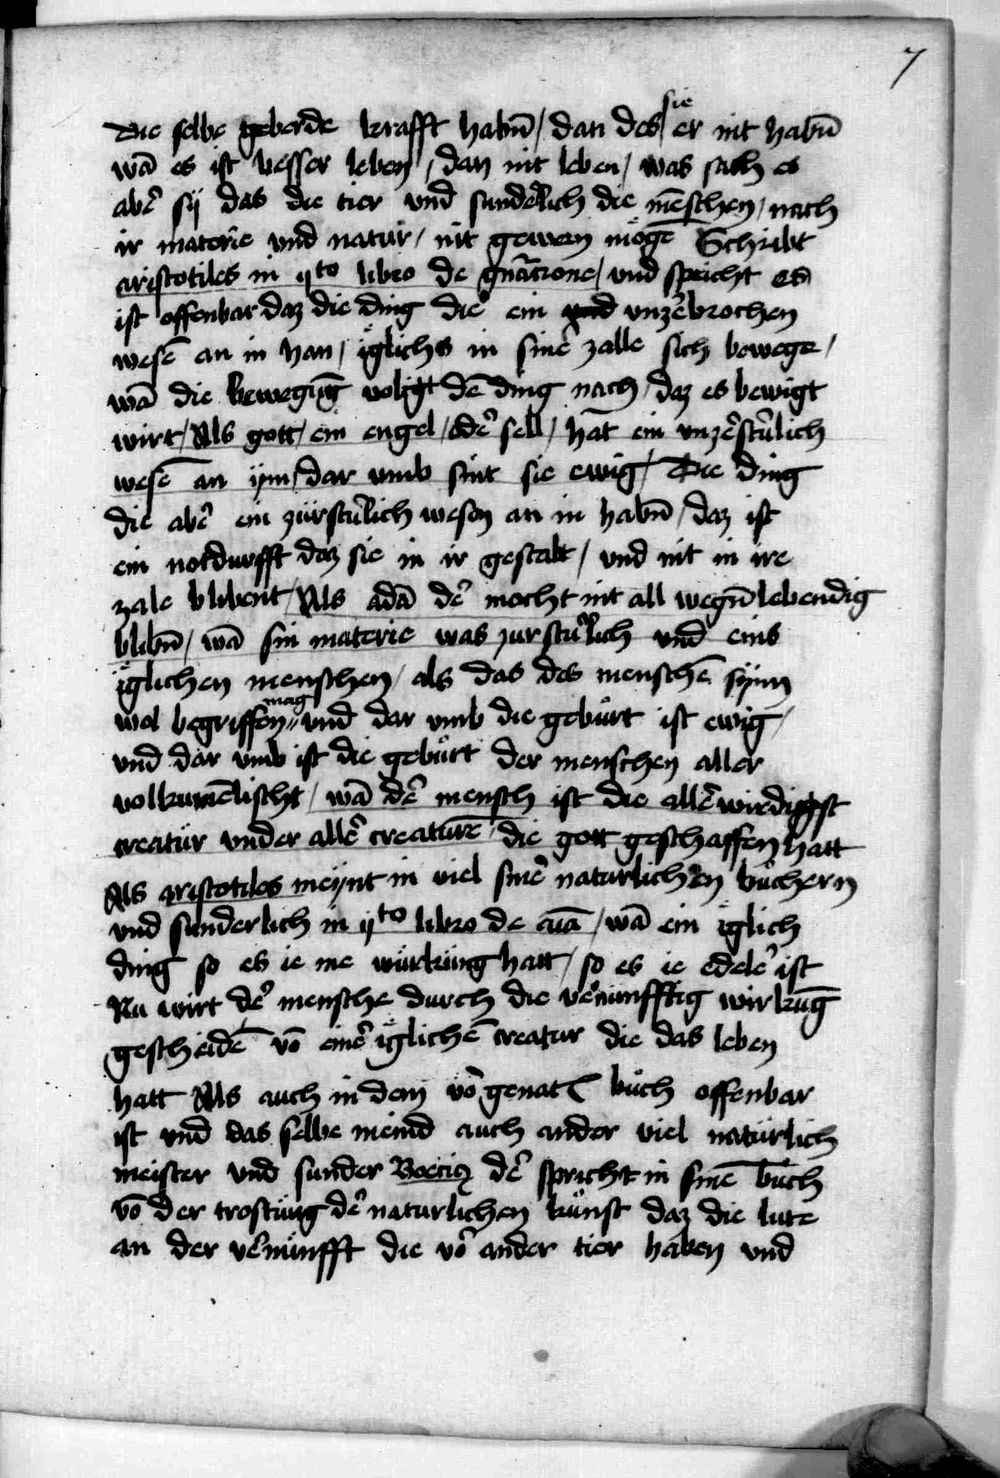 7
Die selbe geberde krafft habn̄ / dan des sie er nit habn̄
wā es ist besser leben / dan nit leben / was sach es
abẻ sÿ das die tier und sundẻlich die mēschen / nach
ir materie und natur / nit gewern mögē Schribt
aristotiles in ijto libro de gn̄acione / und spricht es
ist offenbar daz die ding die ein unzẻbrochen
wesē an in han / iglichs in sinẻ zalle sich bewege /
wā die bewegūg volgt dē ding nach / daz es bewigt
wirt / Als gott / ein engel / odẻ sell / hat ein unzẻstủlich
wesē an ÿm / dar umb sint sie ewig / Die ding
die abẻ ein zürstủlich wesen an in habn̄ / daz ist
ein notdurfft daz sie in ir gestalt / und nit in ire
zale blibent / Als adā dẻ mocht nit all wegn̄ lebendig
blibn̄ / wā sin materie was zurstủlich und eins
iglichen menschen / als das des menschē sÿnn
wol begriffen mag // und dar umb die gebürt ist ewig /
und dar umb ist die gebürt der menschen aller
volkumēlischt / wā dẻ mensch ist die allẻwirdigst
creatür under allẻ creaturē / die gott geschaffen hatt
Als aristotiles meÿnt in viel sinẻ naturlichen büchern
und sunderlich in ijto libro de aīa / wā ein iglich
ding so es ie me würkung hatt / so es ie edelẻ ist
Nu wirt dẻ mensche durch die vẻnünfftig wirkūg
gescheidē vō einẻ iglichē creatur die das leben
hatt Als auch in dem vỏgenatē büch offenbar
ist und das selbe meind auch ander viel natürlich
meister und sunder Boecius dẻ spricht in sinē büch
vō der trostung dẻ naturlichen künst daz die lute
an der vẻnünfft die vỏ ander tier haben und